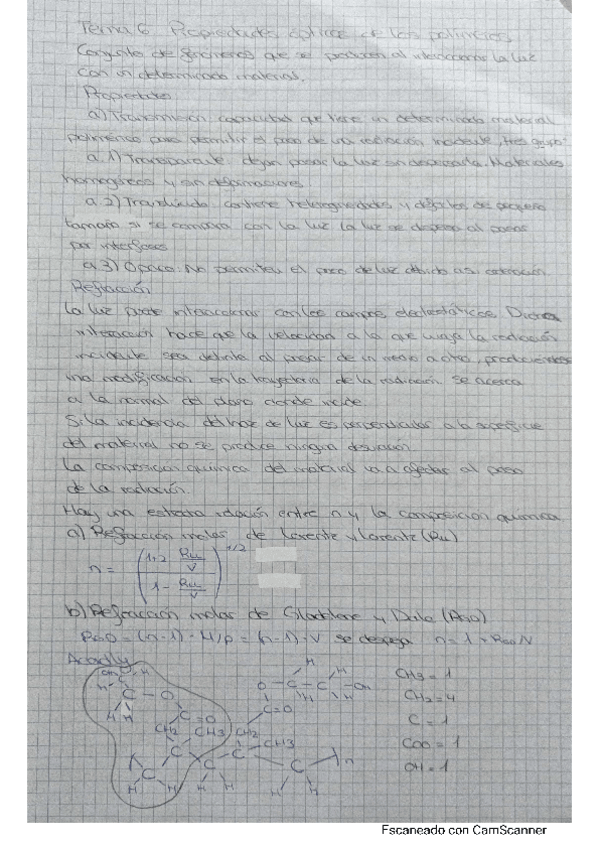 Tema 6 Propiedades ópticas de los polímeros
Conjunto de fenómenos que se producen al interaccionar la luz
con un determinado material.
Propiedades
a) Transmisión capacidad que tiene un determinado material
polimérico para permitir el paso de una radiación incidente, tres
a.1) Transparente dejan pasar la luz sin dispersarla. Materiales
homogéneos y sin
a.2) Translúcido contiene heterogeneidades y defectos de pequeño
tamaño si se compara con la luz la luz se dispersa al pasar
por interfases
a.3) Opaco: No permiten el paso de luz debido a su
Refracción
La luz puede interaccionar con los campos electrostáticos. Dicha
interacción hace que la velocidad a la que viaja la radiación
incidente sea distinta al pasar de un medio a otro, produciéndose
una modificación en la trayectoria de la radiación se acerca
a la normal del plano donde incide
Si la incidencia del haz de luz es perpendicular a la superficie
del material no se produce ninguna desviación
La composición química del material va a afectar al paso
de la radiación.
Hay una estrecha relación entre n y la composición química
a) Refracción molar de Lorentz y Lorentz (RLL)
n = ( (1+2 RLL/V) / (1 - RLL/V) )^1/2
b) Refracción molar de Gladstone y Dale (RGD)
RGD = (n-1) · M/ρ = (n-1) · V se despeja n = 1 + RGD/V
CH3 = 1
CH2 = 4
C = 1
COO = 1
OH = 1
O - C - C - OH
H H H H
C=O
C - O
H H
C=O
CH2 CH3 CH2
CH3
C C C C n
H H H H H H
Escaneado con CamScanner